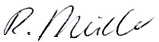 R. Müller